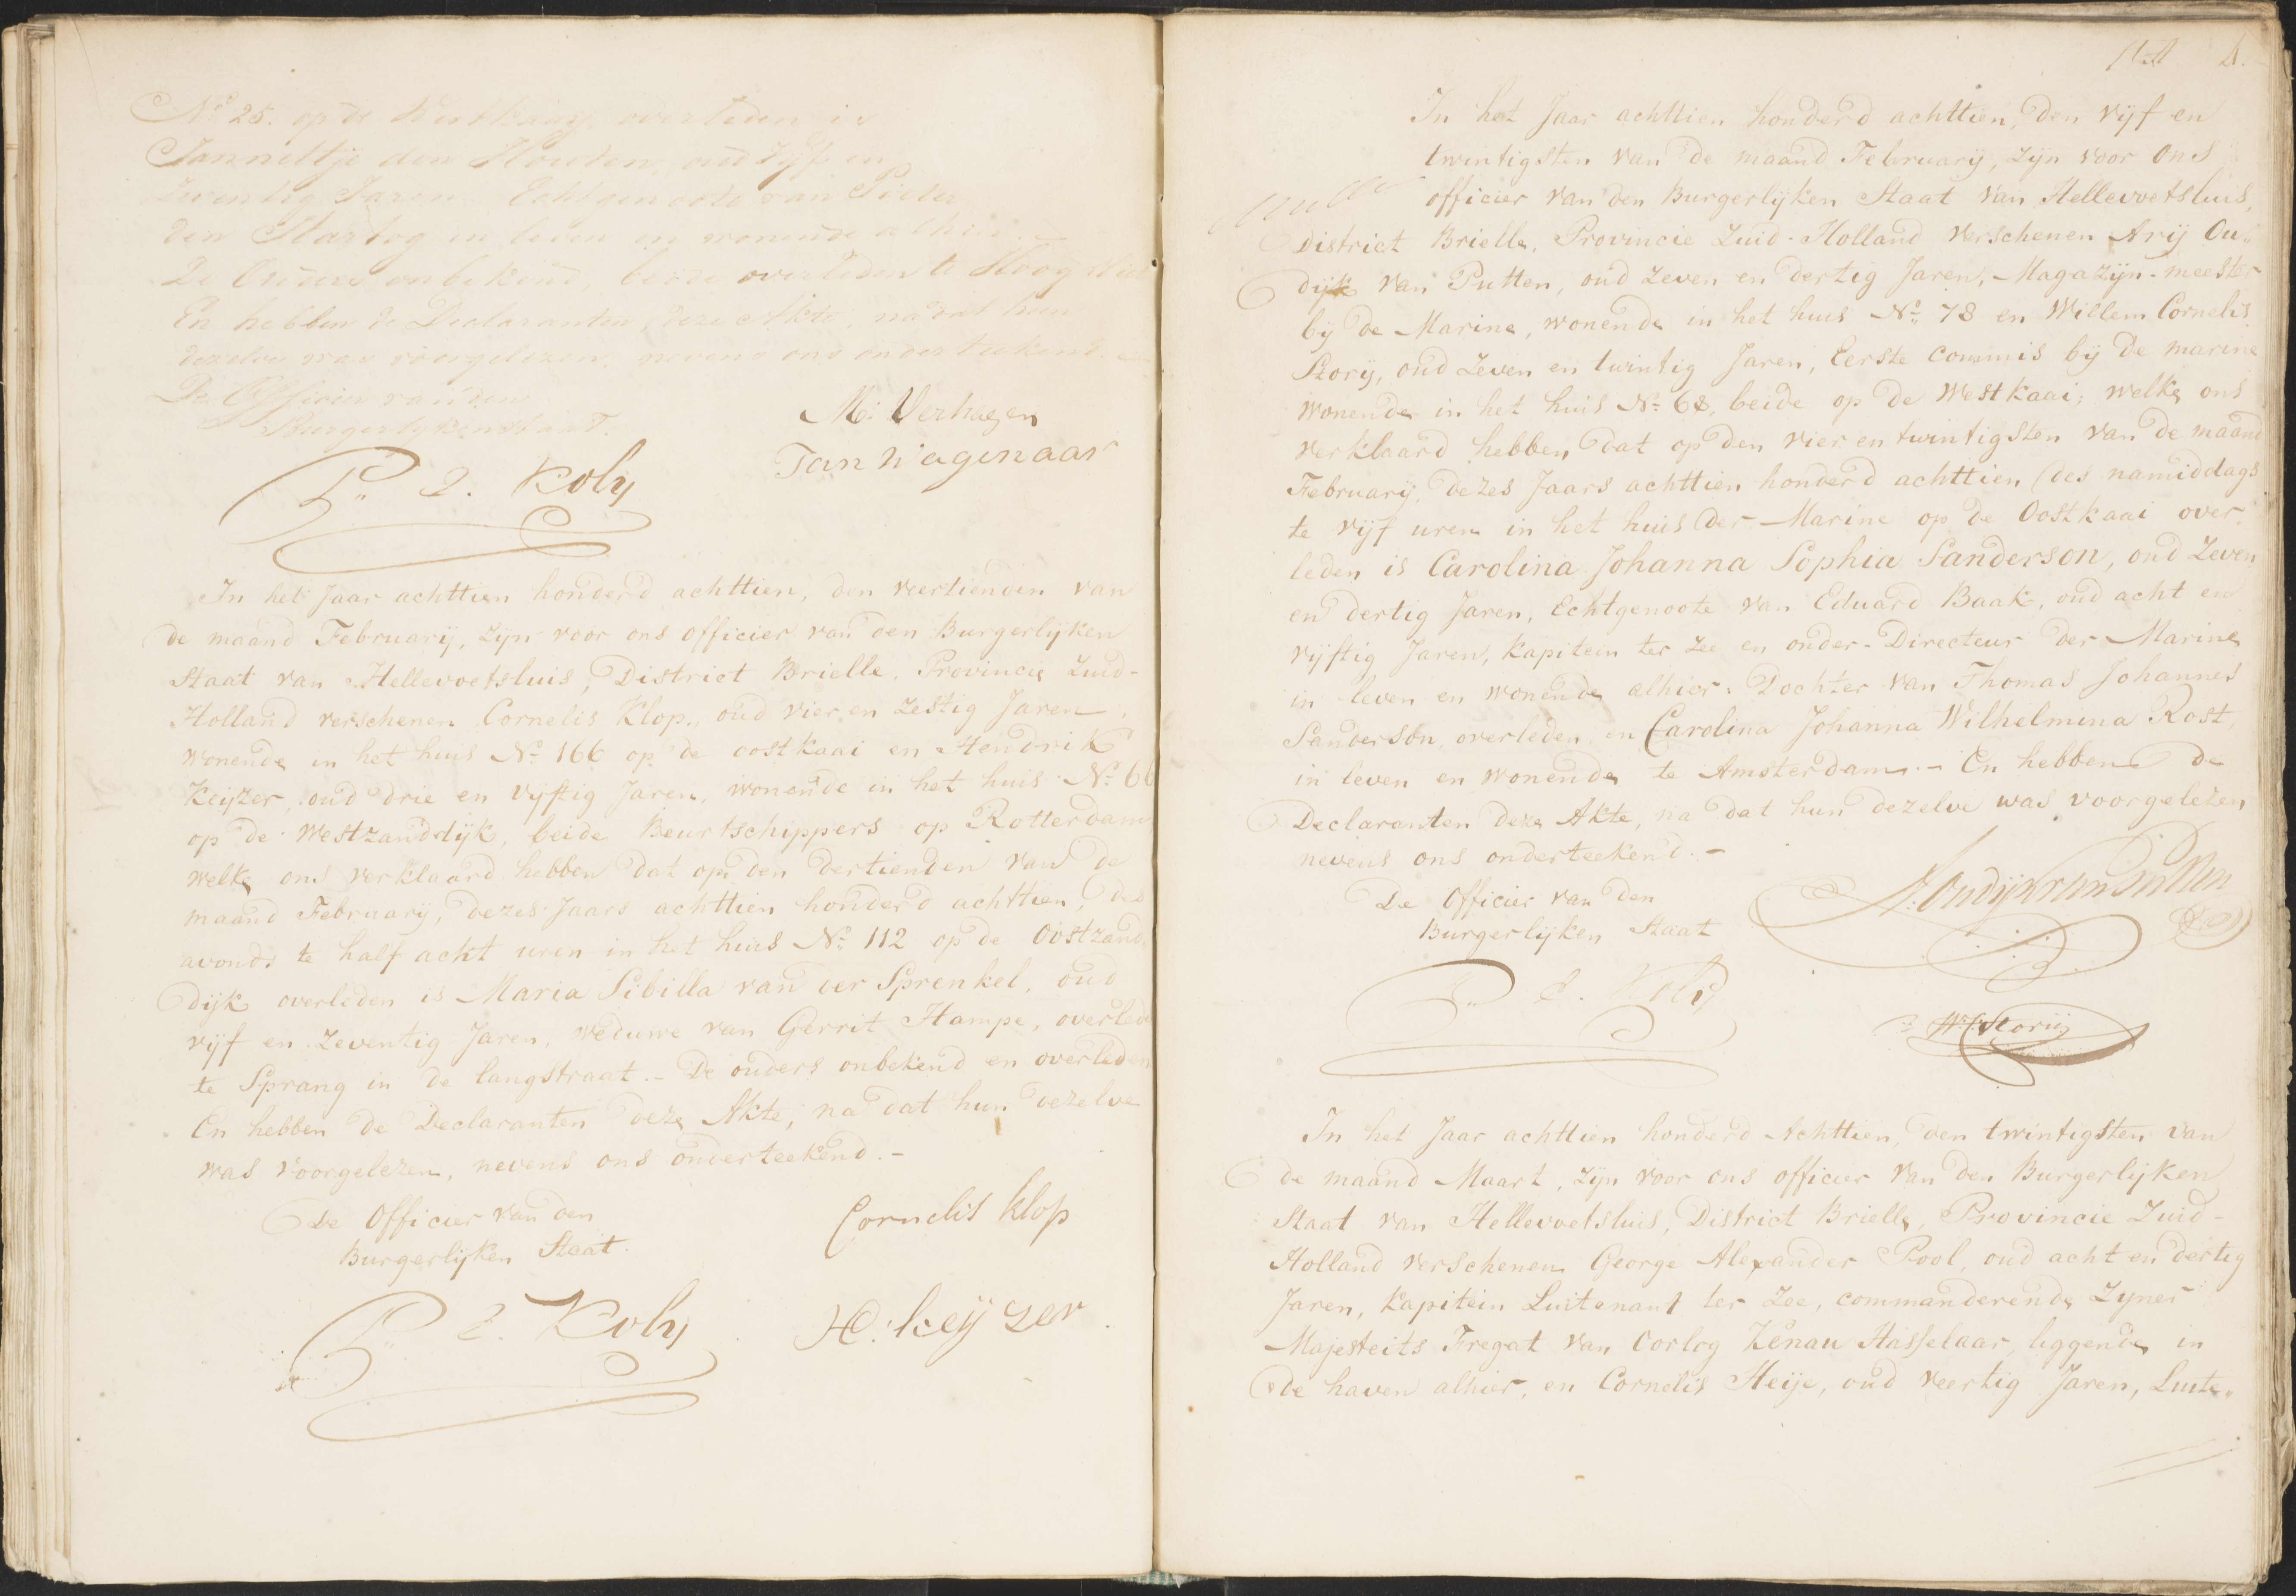 No 25. op de Westkaay overleden is
Jannettje den Houten, oud Vijf en
Zeventig Jaren. Echtgenoote van Pieter
den Hartog in leven en wonende alhier. —
De Ouders onbekend, beide overleden te Hoog
En hebben de Declaranten, deze Akte nadat hun
dezelve was voorgelezen, nevens ons onderteekend. —
De Officier van den
Burgerlyken Staat.
M: Verhagen
Jan Wagenaar
P. E. Koly
In het Jaar achttien honderd achttien, den veertienden van
de maand Februarij, zijn voor ons officier van den Burgerlijken
Staat van Hellevoetsluis, District Brielle, Provincie Zuid-
Holland verschenen Cornelis Klop, oud vier en Zestig Jaren,
wonende in het huis No 166 op de oostkaai en Hendrik
Keijzer, oud drie en Vijftig Jaren, wonende in het huis No 66
op de Westzanddijk, beide Beurtschippers op Rotterdam
welke ons verklaard hebben dat op den dertienden van de
maand Februarij, dezes Jaars achttien honderd achttien, des
avonds te half acht uren in het huis No 112 op de Oostzand
dijk overleden is Maria Sibilla van der Sprenkel, oud
vijf en Zeventig Jaren, weduwe van Gerrit Hampe, overleden
te Sprang in de langstraat. - De ouders onbekend en overleden
En hebben de Declaranten deze Akte, na dat hun dezelve
was voorgelezen, nevens ons onderteekend. -
De Officier van den
Burgerlijken Staat.
Cornelis Klop
P. E. Koly
H: keijzer.
4.
In het Jaar achttien honderd achttien, den vijf en
twintigsten van de maand Februarij, zijn voor ons
officier van den Burgerlijken Staat van Hellevoetsluis,
District Brielle, Provincie Zuid-Holland verschenen Arij Ou„
dijk van Putten, oud zeven en dertig Jaren, Magazijn-meester
bij de Marine, wonende in het huis No 78 en Willem Cornelis
Storij, oud Zeven en twintig Jaren, Eerste commis bij de marine
wonende in het huis No 68, beide op de Westkaai; welke ons
verklaard hebben, dat op den vier en twintigsten van de maand
Februarij, dezes Jaars achttien honderd achttien, des namiddags
te vijf uren in het huis der Marine op de Oostkaai over„
leden is Carolina Johanna Sophia Sanderson, oud Zeven
en dertig Jaren, Echtgenoote van Eduard Baak, oud acht en
vijftig Jaren, kapitein ter Zee en onder-Directeur der Marine
in leven en wonende alhier. Dochter van Thomas Johannes
Sanderson, overleden, en Carolina Johanna Wilhelmina Rost,
in leven en wonende te Amsterdam. - En hebben de
Declaranten deze Akte, na dat hun dezelve was voorgelezen
nevens ons onderteekend. -
De Officier van den
Burgerlijken Staat
A: Oudijk van Putten
P. E. Koly
W: C: Storij
In het Jaar achttien honderd Achttien, den twintigsten van
de maand Maart, zijn voor ons officier van den Burgerlijken
Staat van Hellevoetsluis, District Brielle, Provincie Zuid-
Holland verschenen George Alexander Pool, oud acht en dertig
Jaren, Kapitein Luitenant ter Zee, commanderende Zyner
Majesteits Fregat van Oorlog Kenau Hasselaar, liggende in
de haven alhier, en Cornelis Heije, oud veertig Jaren, Luite„